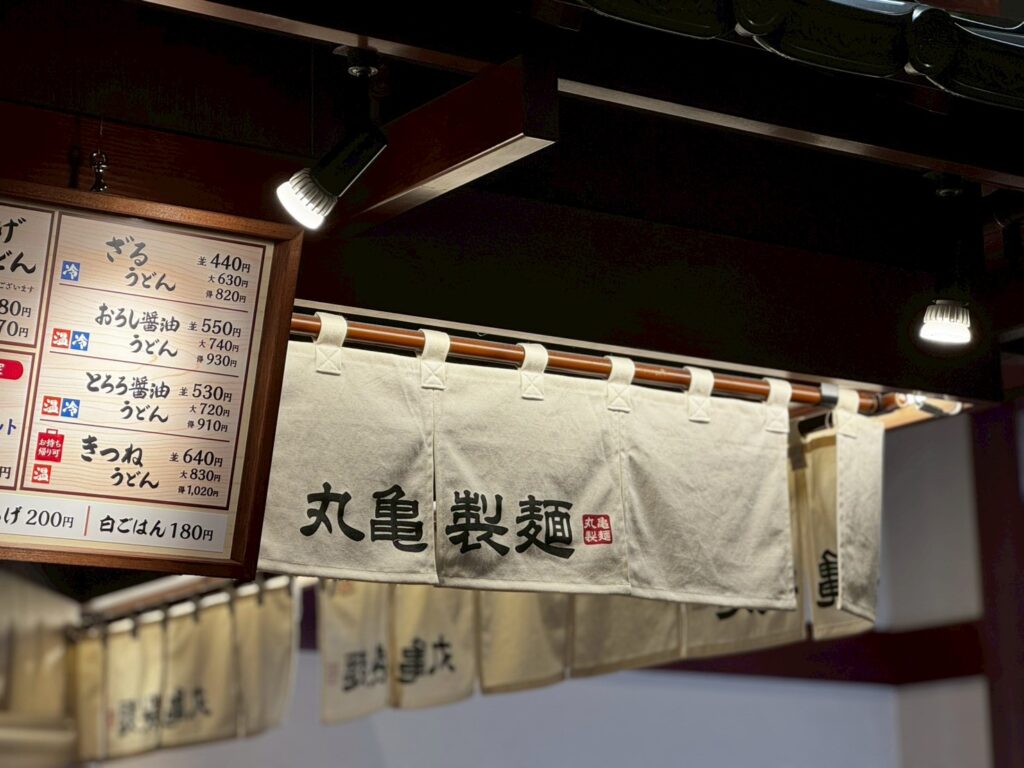 げ
どん
ございます
80円
70円
ざる
うどん
冷
並 440円
大 630円
得 820円
おろし醤油
うどん
温 冷
並 550円
大 740円
得 930円
とろろ醤油
うどん
温 冷
並 530円
大 720円
得 910円
お持ち
帰り可
温
きつね
うどん
並 640円
大 830円
得 1,020円
げ 200円
白ごはん 180円
丸亀製麺
丸亀
製麺